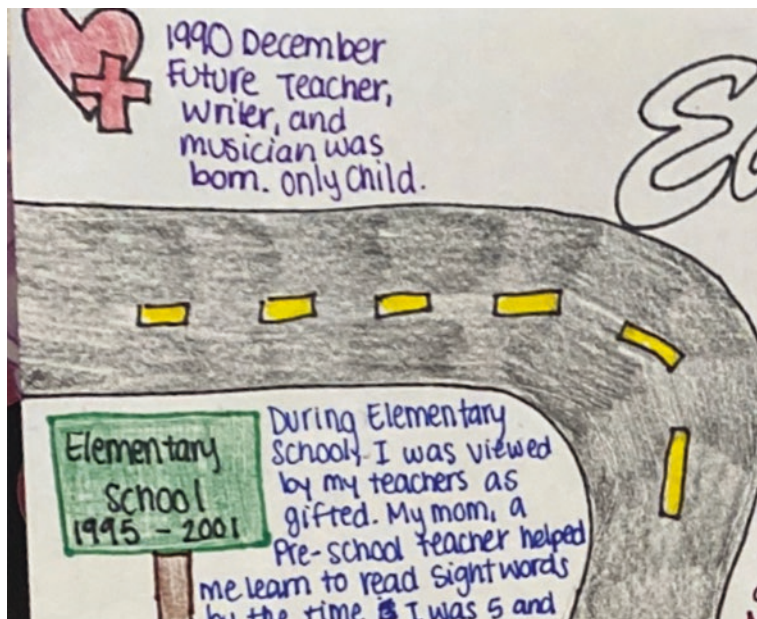 1990 December
Future Teacher,
writer, and
musician was
born. only child.
Elementary
School
1995 - 2001
During Elementary
School, I was viewed
by my teachers as
gifted. My mom, a
Pre-school teacher helped
me learn to read sight words
by the time I was 5 and